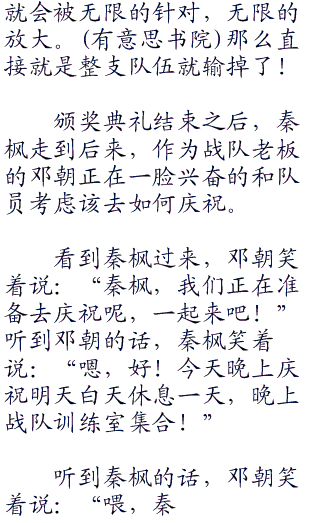 就会被无限的针对，无限的
放大。(有意思书院)那么直
接就是整支队伍就输掉了！
颁奖典礼结束之后，秦
枫走到后来，作为战队老板
的邓朝正在一脸兴奋的和队
员考虑该去如何庆祝。
看到秦枫过来，邓朝笑
着说：“秦枫，我们正在准
备去庆祝呢，一起来吧！”
听到邓朝的话，秦枫笑着
说：“嗯，好！今天晚上庆
祝明天白天休息一天，晚上
战队训练室集合！”
听到秦枫的话，邓朝笑
着说：“喂，秦